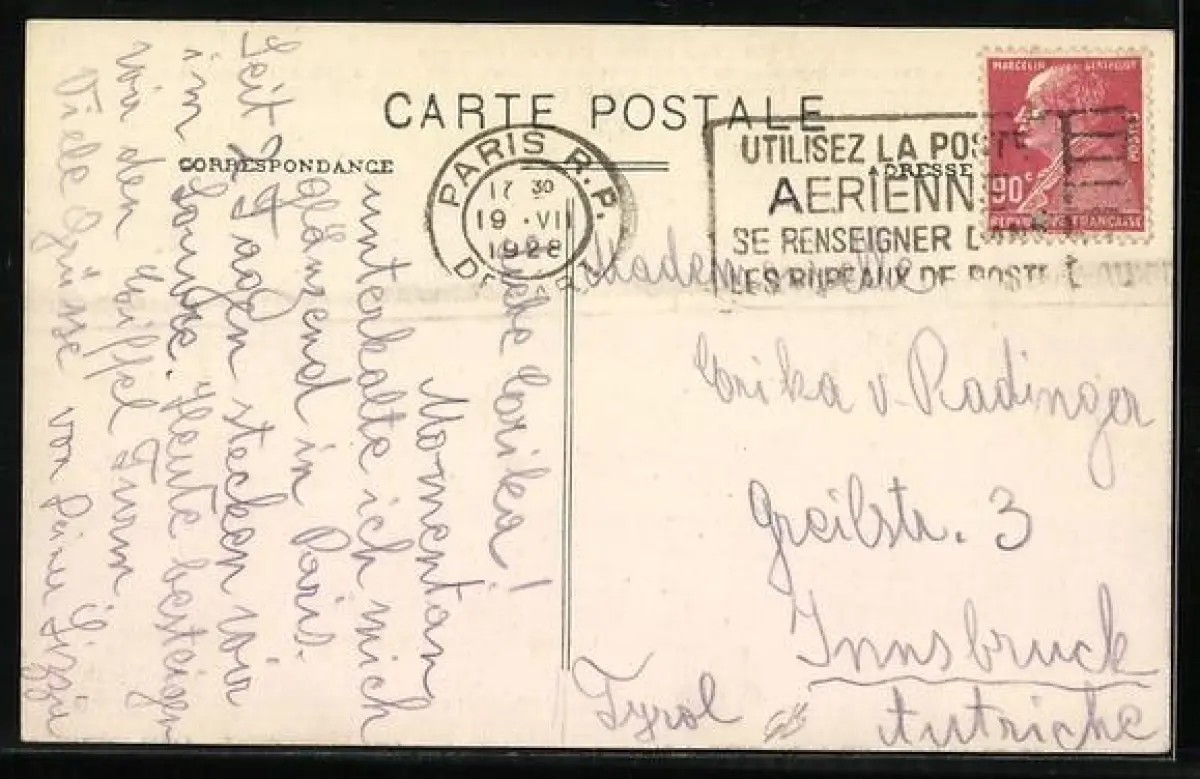 CARTE POSTALE
CORRESPONDANCE
ADRESSE
PARIS R.P.
17 30
19 · VII
1928
UTILISEZ LA POSTE
AERIENNE
SE RENSEIGNER DANS
LES BUREAUX DE POSTE
MARCELIN BERTHELOT
POSTES
90c
REPUBLIQUE FRANÇAISE
Liebe Erika!
Momentan
unterhalte ich mich
glänzend in Paris.
Seit 2 Tagen stecken wir
im Louvre. Heute besteigen
wir den Eiffel Turm
Viele Grüsse von Deiner Lizzie
Mademoiselle
Erika v. Radinger
Greilstr. 3
Innsbruck
Tyrol
Autriche